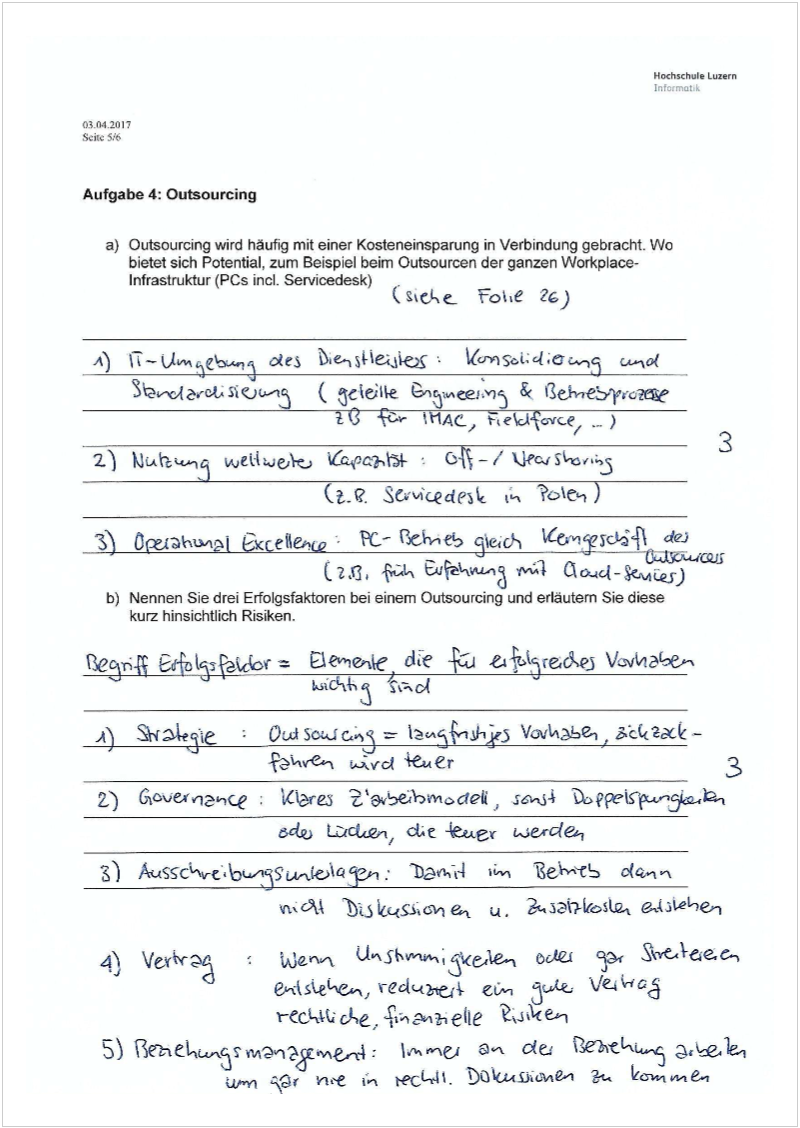 Hochschule Luzern
Informatik
03.04.2017
Seite 5/6
Aufgabe 4: Outsourcing
a) Outsourcing wird häufig mit einer Kosteneinsparung in Verbindung gebracht. Wo
bietet sich Potential, zum Beispiel beim Outsourcen der ganzen Workplace-
Infrastruktur (PCs incl. Servicedesk)
(siehe Folie 26)
1) IT-Umgebung des Dienstleisters : Konsolidierung und
Standardisierung ( geteilte Engineering & Betriebsprozesse
zB für IMAC, Fieldforce, ... )
3
2) Nutzung weltweiter Kapazität : Off-/Nearshoring
(z.B. Servicedesk in Polen)
3) Operational Excellence : PC-Betrieb gleich Kerngeschäft des
Outsourcers
(z.B. früh Erfahrung mit Cloud-Services)
b) Nennen Sie drei Erfolgsfaktoren bei einem Outsourcing und erläutern Sie diese
kurz hinsichtlich Risiken.
Begriff Erfolgsfaktor = Elemente, die für erfolgreiches Vorhaben
wichtig sind
1) Strategie : Outsourcing = langfristiges Vorhaben, zickzack-
fahren wird teuer
3
2) Governance : Klares Z'arbeitmodell, sonst Doppelspurigkeiten
oder Lücken, die teuer werden
3) Ausschreibungsunterlagen : Damit im Betrieb dann
nicht Diskussionen u. Zusatzkosten entstehen
4) Vertrag : Wenn Unstimmigkeiten oder gar Streitereien
entstehen, reduziert ein gute Vertrag
rechtliche, finanzielle Risiken
5) Beziehungsmanagement : Immer an der Beziehung arbeiten
um gar nie in rechtl. Diskussionen zu kommen